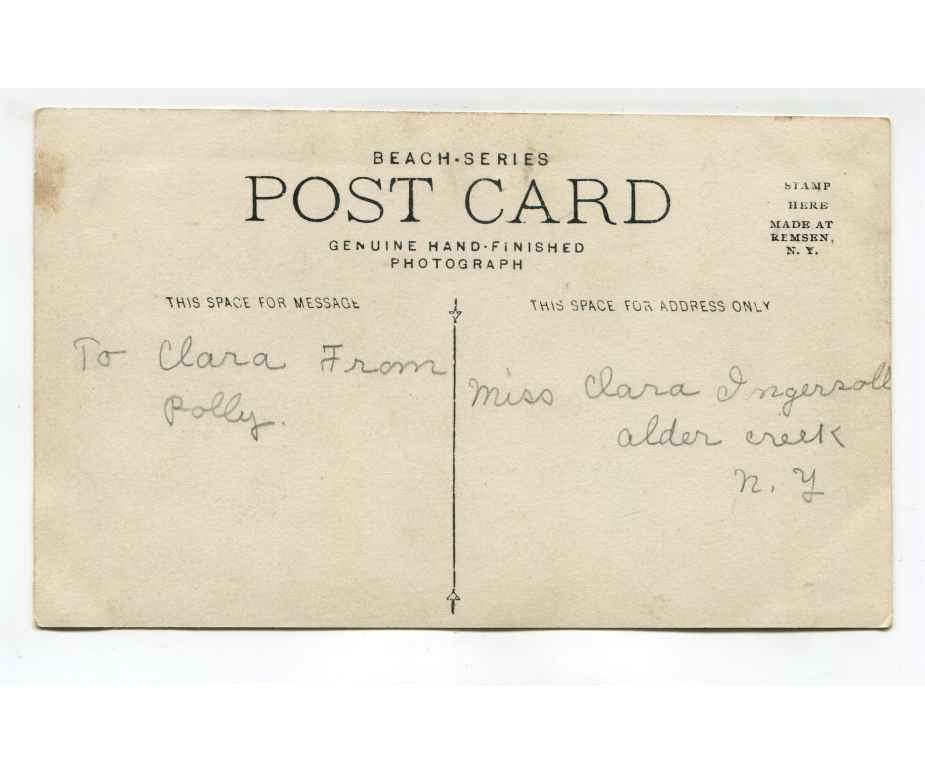 BEACH-SERIES
POST CARD
GENUINE HAND-FINISHED
PHOTOGRAPH
STAMP
HERE
MADE AT
REMSEN,
N. Y.
THIS SPACE FOR MESSAGE
To Clara From
Polly.
THIS SPACE FOR ADDRESS ONLY
Miss Clara Ingersoll
alder creek
N. Y